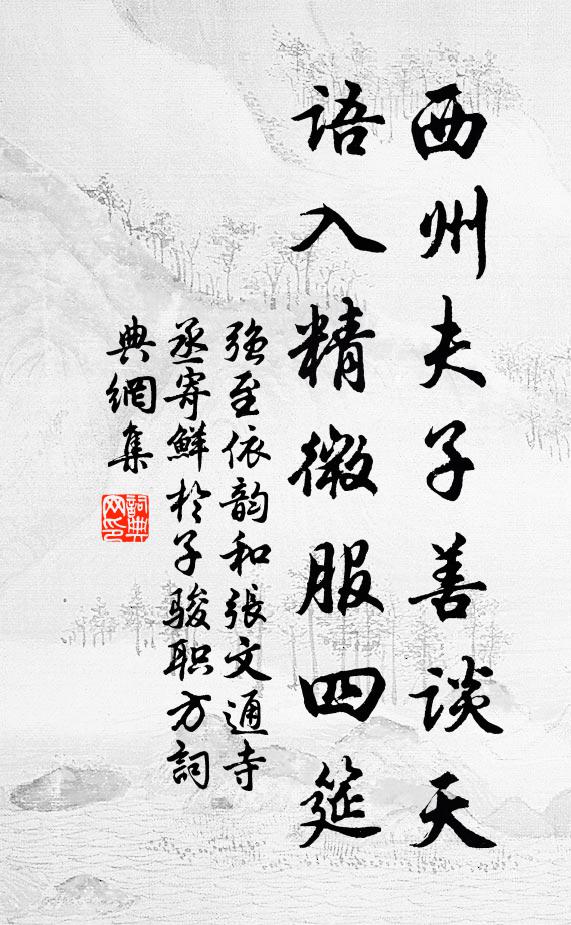 西州夫子善谈天
语入精微服四筵
强至依韵和张文通寺
丞寄鲜於子骏职方词
典网集
词典网印